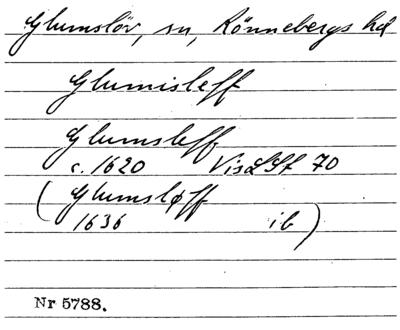 Glumslöv, sn, Rönnebergs hd
Glumisleff
Glumsleff
c. 1620 VisLSt 70
(Glumsløff
1636 ib)
Nr 5788.